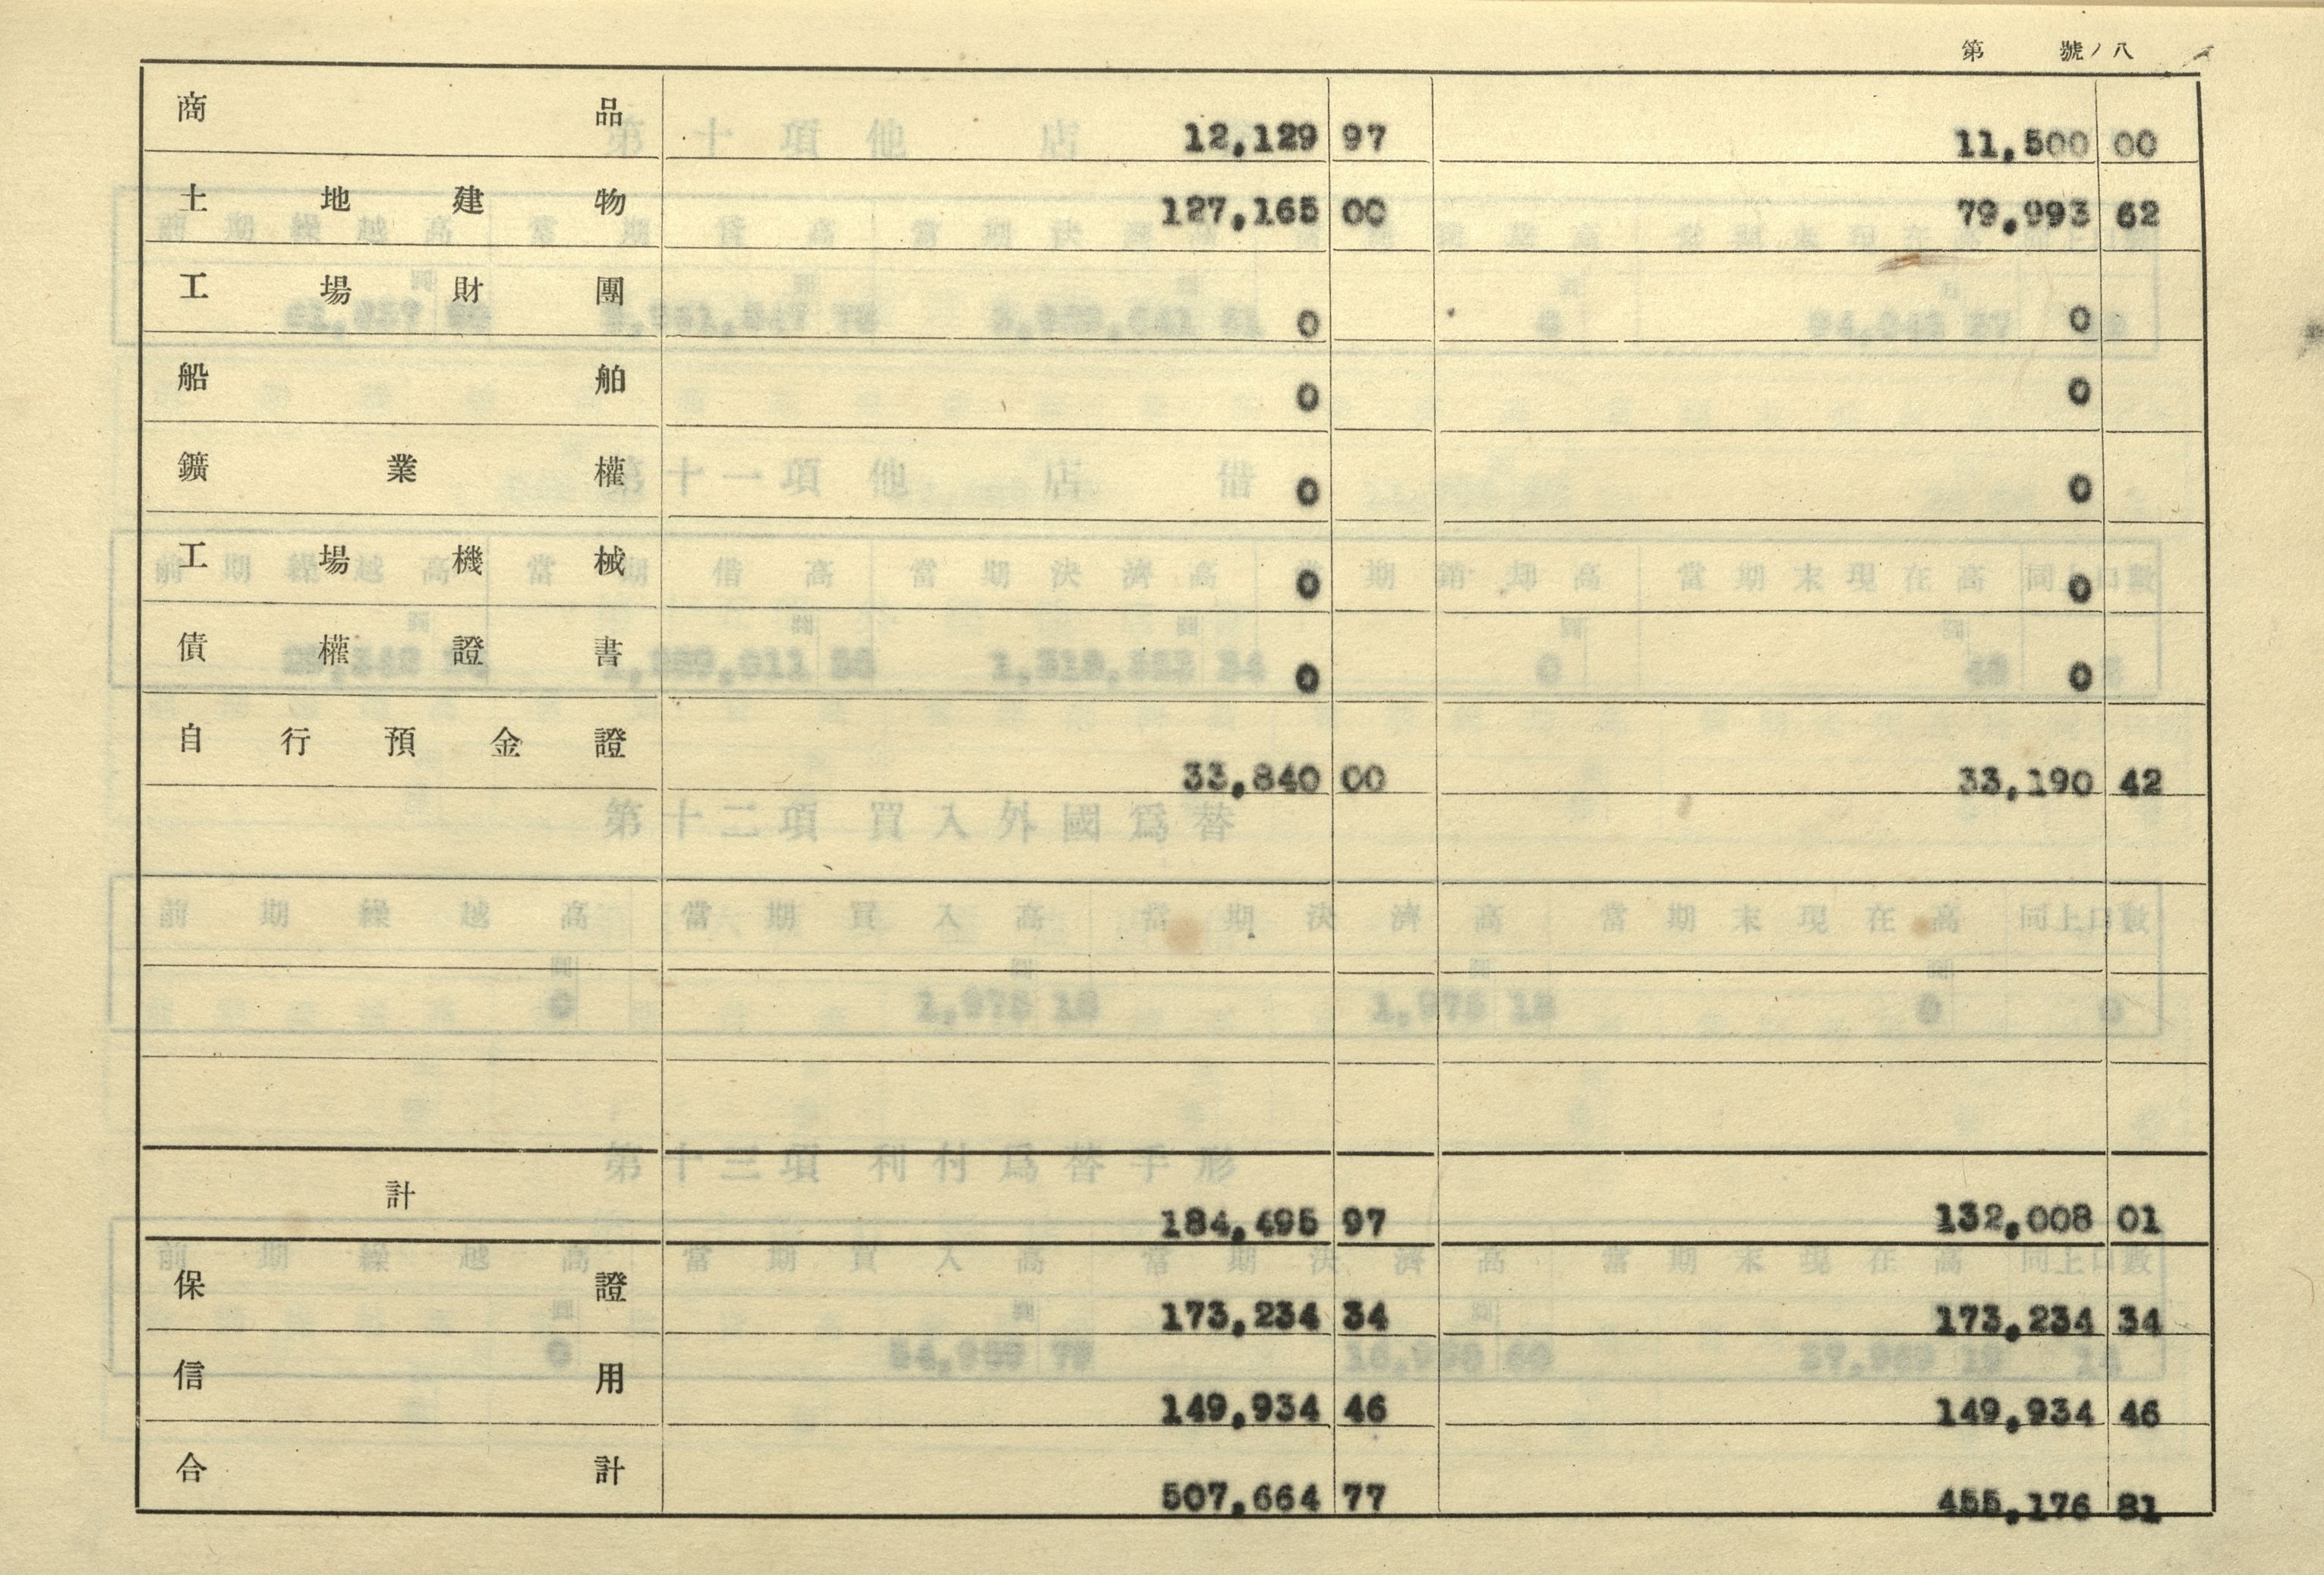 第 號ノ八
商品 12,129 97 11,500 00
土地建物 127,165 00 79,993 62
工場財團 0 0
船舶 0 0
鑛業權 0 0
工場機械 0 0
債權證書 0 0
自行預金證 33,840 00 33,190 42
計 184,495 97 132,008 01
保證 173,234 34 173,234 34
信用 149,934 46 149,934 46
合計 507,664 77 455,176 81